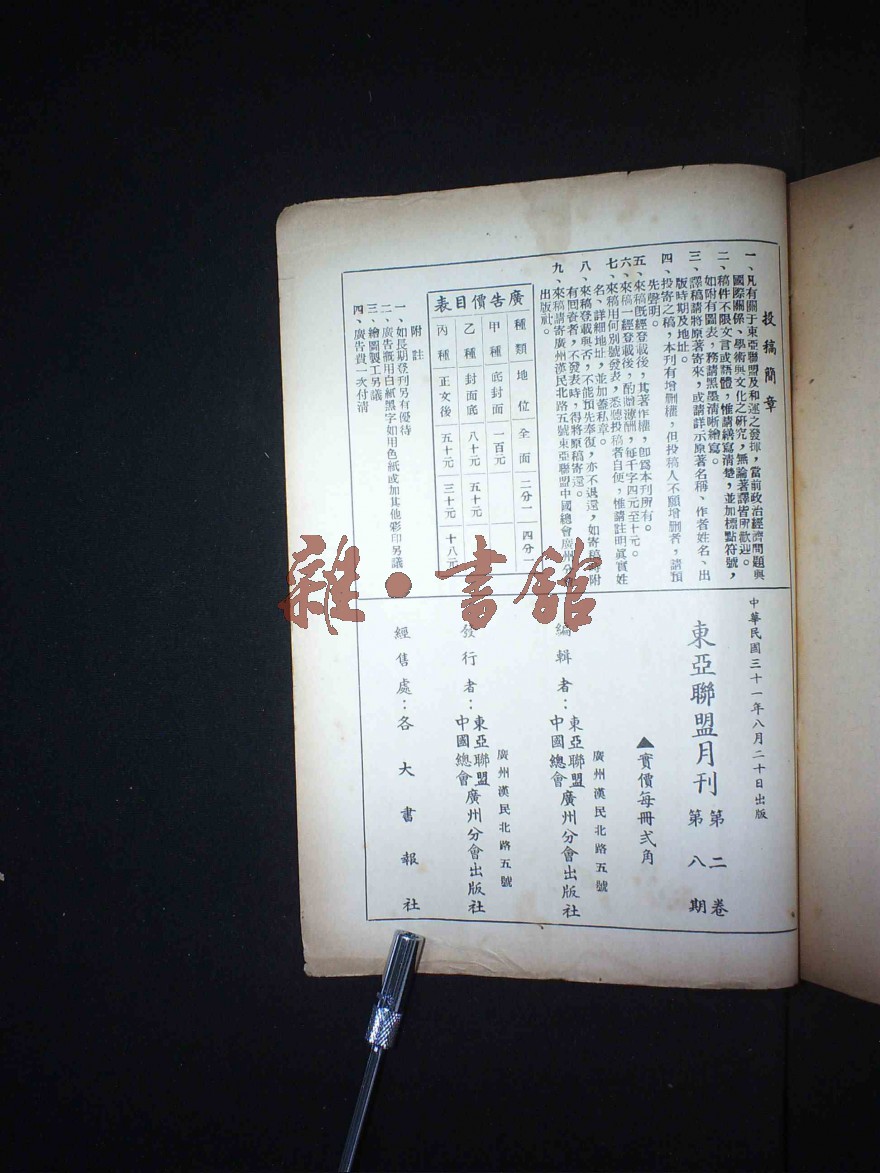 投稿簡章
一、凡有關于東亞聯盟及和運之發揮，當前政治經濟問題與
國際關係、學術與文化之研究，無論著譯皆所歡迎。
二、稿件不限文言或語體，惟請繕寫清楚，並加標點符號，
如附有圖表，務請黑墨清晰繪寫。
三、譯稿請將原著寄來，或請詳示原著名稱、作者姓名、出
版時期及地址。
四、投寄之稿，本刊有增删權，但投稿人不願增删者，請預
先聲明。
五、來稿旣經登載後，其著作權，卽爲本刊所有。
六、來稿一經登載後，酌贈薄酬，每千字四元至十元。
七、來稿用何別號發表，悉聽投稿者自便，惟請註明眞實姓
名、詳細地址，並加蓋私章。
八、來稿登載與否，不能預先奉復，亦不退還，如寄稿時附
有回資者，不發表時，得將原稿寄還。
九、來稿請寄廣州漢民北路五號東亞聯盟中國總會廣州分會
出版社。
廣告價目表
種類 地位 全面 二分一 四分一
甲種 底封面 一百元
乙種 封面底 八十元 五十元
丙種 正文後 五十元 三十元 十八元
附註
一、如長期登刊另有優待
二、廣告概用白紙黑字如用色紙或加其他彩印另議
三、繪圖製工另議
四、廣告費一次付清
中華民國三十一年八月二十日出版
東亞聯盟月刊 第二卷
第八期
▲實價每冊弍角
廣州漢民北路五號
編輯者：東亞聯盟中國總會廣州分會出版社
廣州漢民北路五號
發行者：東亞聯盟中國總會廣州分會出版社
經售處：各大書報社
雜·書館